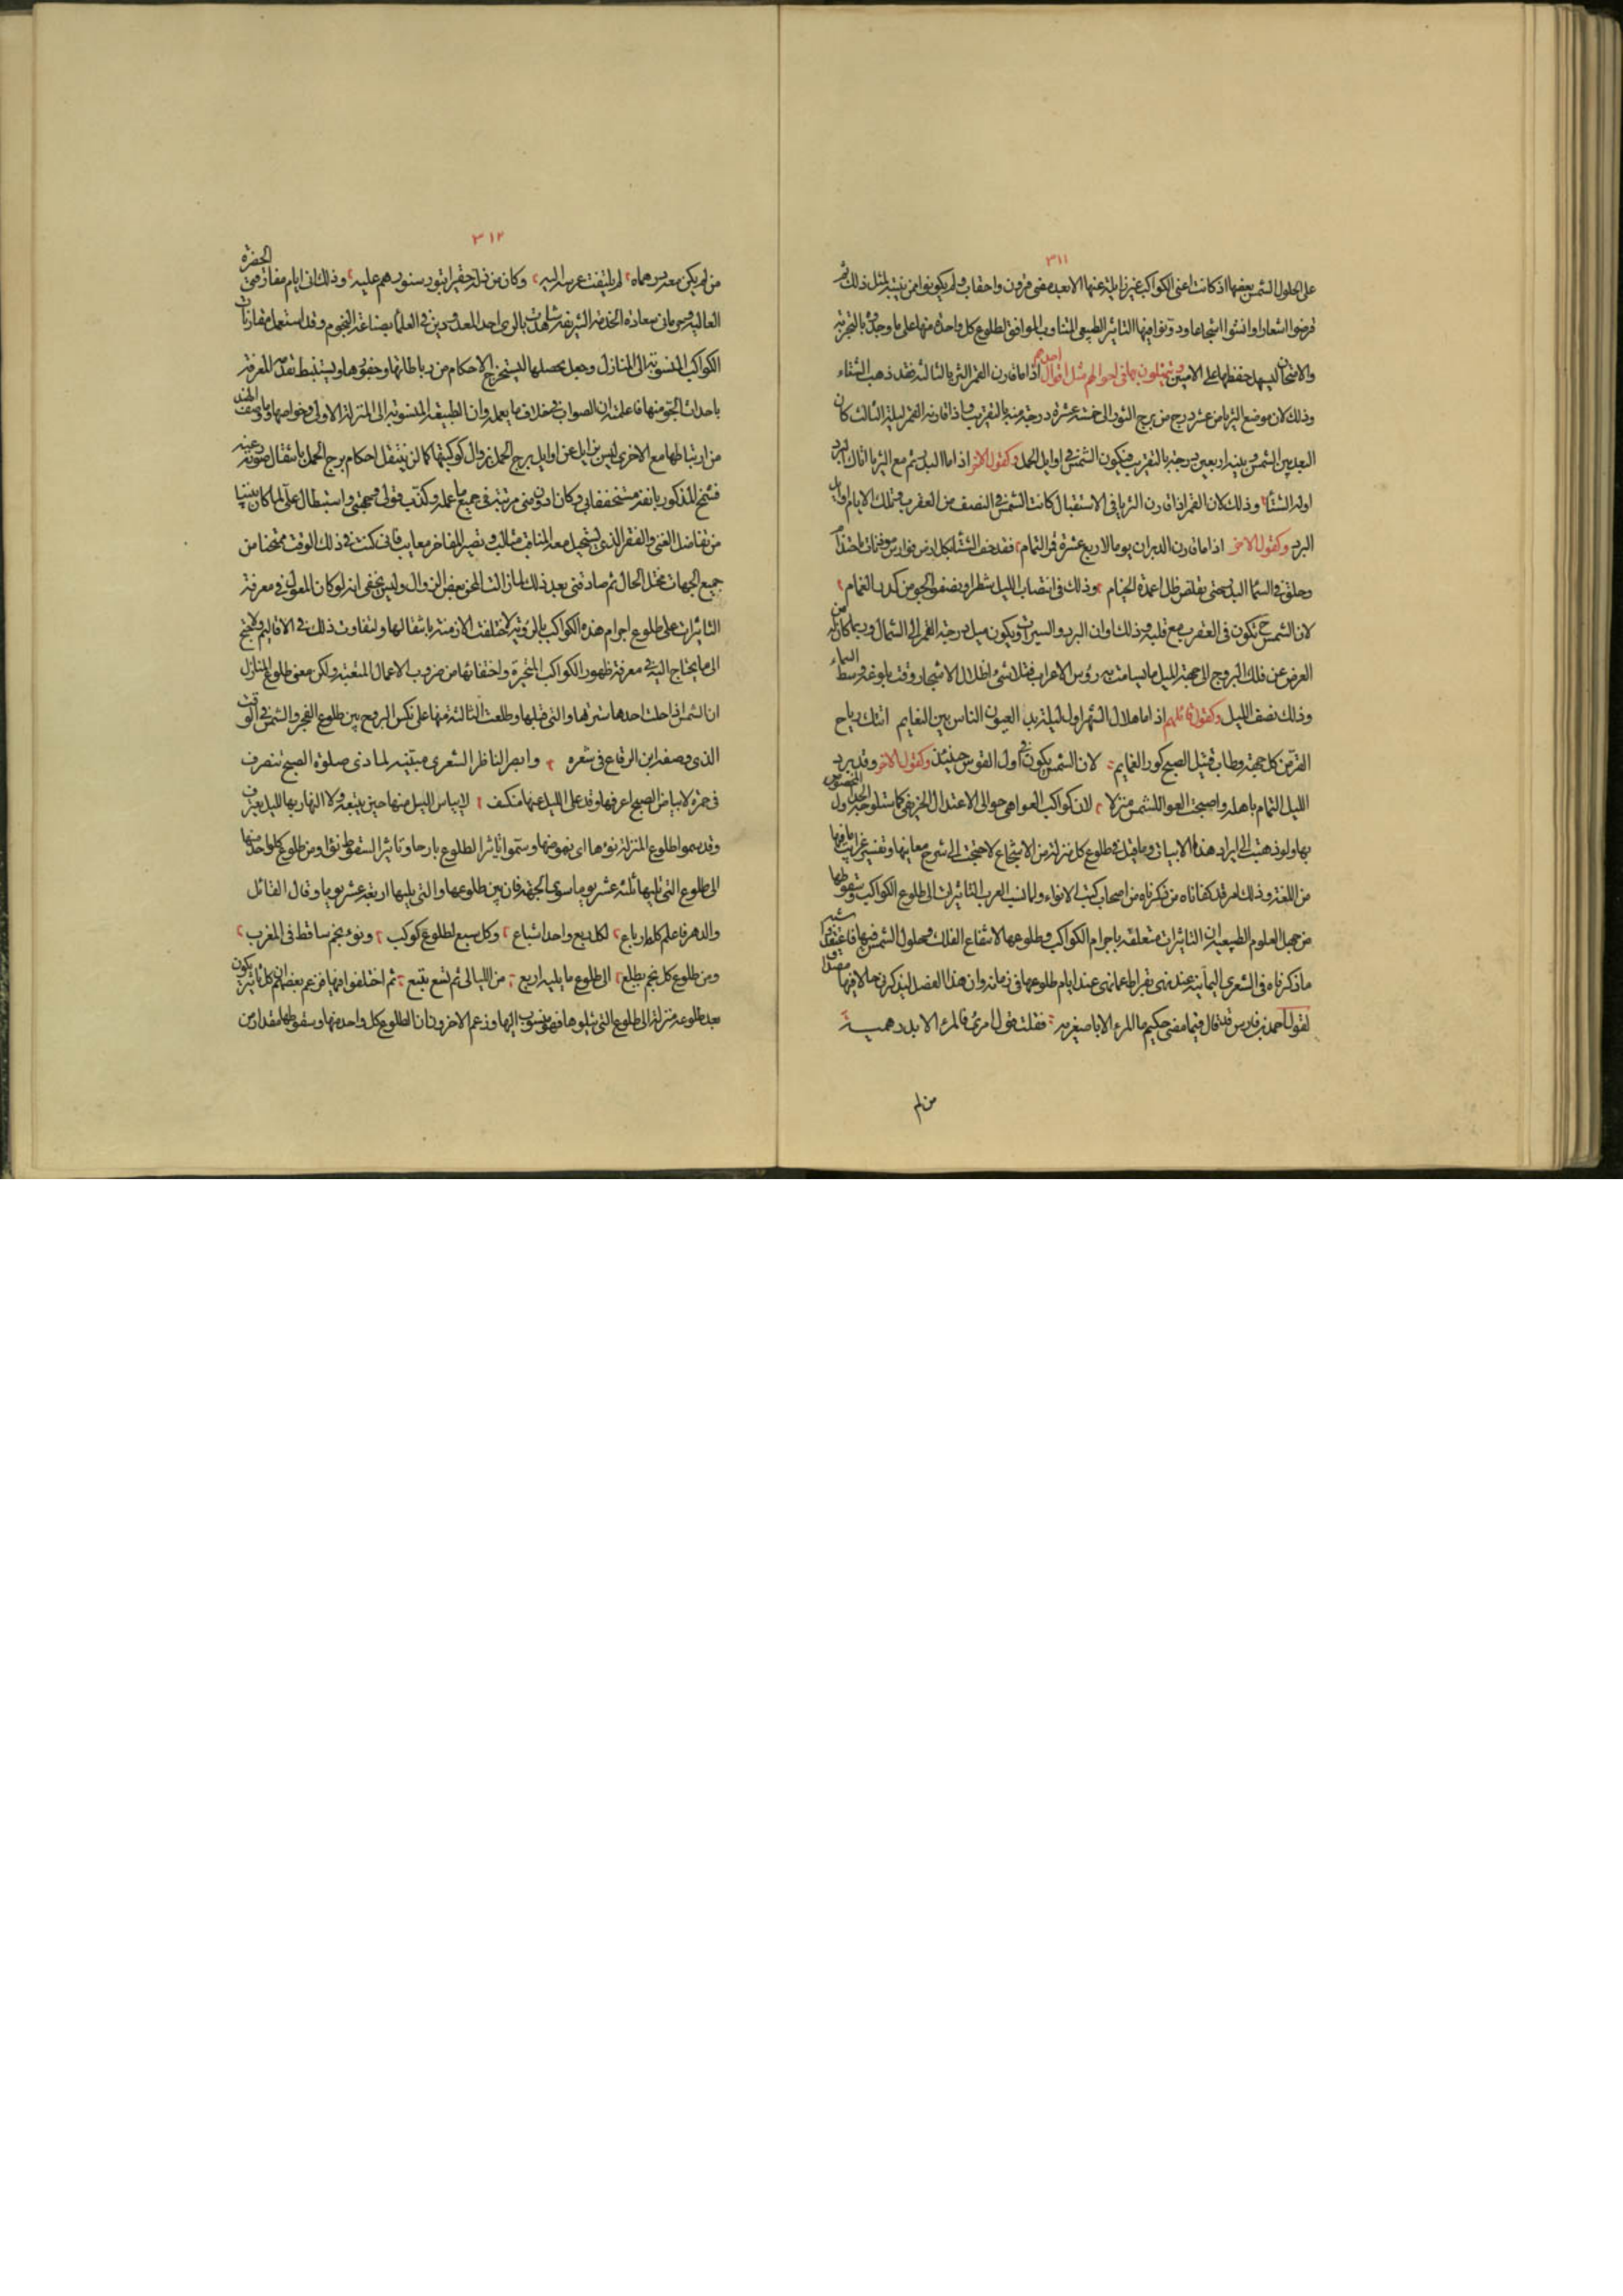 ٣١١
على الحلول الشمس بعضها اذ كانت اعنى الكواكب غير زايلة عنها الا بعد مضى قرون واحقاب ولم يكونوا ممن يتنبه لمثل ذلك ثم
قرضوا اشعارا وانشوا اسجاعا ودونوا فيها التاثير الطبيعى المتناوب الموافق لطلوع كل واحدة منها على ما وجدوه بالتجربة
والامتحان ليسهل حفظها على الاميين ويتمثلون بها فى احوالهم مثل اقوال احدهم اذا ما قارن القمر الثريا لثالثة فقد ذهب الشتاء
وذلك لان موضع الثريا من عشر درج من برج الثور الى خمسة عشرة درجة منه بالتقريب فاذا قارنه القمر ليلة الثالث كان
البعد بين الشمس وبينه اربعين درجة بالتقريب فيكون الشمس فى اوايل الحمل وكقول الاخر اذا ما البدر تم مع الثريا اتاك البرد
اوله الشتاء وذلك لان القمر اذا قارن الثريا فى الاستقبال كانت الشمس فى النصف من العقرب وتلك الايام اوايل
البرد وكقول الاخر اذا ما قارن الدبران يوما لاربع عشرة قمر التمام فقد حف الشتاء بكل ارض
وحلق فى السماء البدر حتى يقلص ظل اعمدة الخيام وذلك فى انتصاب الليل شطرا ويصفو الجو من كدر الغمام
لان الشمس ح تكون فى العقرب مع قلبه وذلك اوان البرد ويكون ميل درجة القمر الى الشمال وربما كان له من
العرض عن فلك البروج الى جهة الميل ما يسامت به رؤس الاعراب فتلاشى اظلال الاشجار وقت بلوغه وسط السماء
وذلك نصف الليل وكقول قائلهم اذا ما هلال الشهر اول ليلة بدا لعيون الناس بين النعايم اتتك رياح
القر من كل جهة وطاب قبيل الصبح كور العمايم لان الشمس يكون فى اول القوس حينئذ وكقول الاخر وقد برد
الليل التمام باهله واصبحت العوا للشمس منزلا لان كواكب العوا هى حوالى الاعتدال الخريفى كما ستلوح
بها ولو ذهبت الى ايراد هذه الابيات وما قيل فى طلوع كل منزلة من الاسجاع لاحتجت الى شرح معانيها وتفسير غرايب ما فيها
من اللغة وذلك امر قد كفاناه من ذكرناه من اصحاب كتب الانواء ولما نسب العرب التاثيرات الى طلوع الكواكب وسقوطها
من جهل العلوم الطبيعية ان التاثيرات متعلقة باجرام الكواكب وطلوعها لا بتقاع الفلك وحلول الشمس فيها
ما ذكرناه فى الشعرى اليمانية عند نهى بقراط عما نهى عند ايام طلوعها فى زمانه وان هذا الفصل
لقول احمد بن فارس قد قال فيما مضى حكيم ما المرء الا باصغريه فقلت قول امرئ ما المرء الا بدرهميه
من لم
٣١٢
من لم يكن معه درهماه لم يلتفت عرسه اليه وكان من ذله حقيرا تبول سنورهم عليه وذلك انى ايام مفارقتى الحضرة
العالية وحرمانى سعادة الخدمة الشريفة شاهدت بالرى احد المعدودين فى العلماء بصناعة النجوم وقد استعمل مقارنات
الكواكب المنسوبة الى المنازل وجعل يحصلها ليستخرج الاحكام من رباطاتها وحقوقها ويستنبط تقدمة المعرفة
باحداث الجو منها فاعلمته ان الصواب فى خلاف ما يعمله وان الطبيعة المنسوبة الى المنزلة الاولى وخواصها وما وصفت الهند
من ارتباطها مع الاخرى ليس بزايل عن اوايل برج الحمل بزوال كوكبيها كما لن ينتقل احكام برج الحمل بانتقال صورته عنه
فشمخ المذكور بانفه مستخففا بى وكان ادون منى مرتبة فى جميع ما علمه وكذب قولى وبهتنى واستطال على لما كان بيننا
من تفاضل الغنى والفقر الذى يستحيل معه المناقب مثالب وتصير المفاخر معايب فانى كنت فى ذلك الوقت ممتحنا من
جميع الجهات مختل الحال ثم صادقنى بعد ذلك لما زالت المحن بعض الزوال وليس يخفى انه لو كان المعول فى معرفة
التاثيرات على طلوع اجرام هذه الكواكب بالرؤية لاختلفت الازمنة بانتقالها ولتفاوت ذلك فى الاقاليم ولاحتج
الى ما يحتاج اليه فى معرفة ظهور الكواكب المتحيرة واختفائها من ضروب الاعمال المتعبة ولكن معنى طلوع المنازل
ان الشمس اذا حلت احدها سترتها والتى قبلها وطلعت الثالثة منها على نكس البروج بين طلوع الفجر والشمس فى الوقت
الذى وصفه ابن الرقاع فى شعره وابصر الناظر الشعرى مبينة لما دنى صلوة الصبح تنصرف
فى حمرة لا بياض الصبح اعرفها وقد على الليل عنها منكشف لا يياس الليل منها حين يتبعه ولا النهار بها لليل يعترف
وقد سموا طلوع المنزلة نوءها اى نهوضها وسموا تاثير الطلوع بارحا وتاثير السقوط نوا ومن طلوع كل واحد منها
الى طلوع التى تليها ثلثة عشر يوما سوى الجبهة فان بين طلوعها والتى يليها اربعة عشر يوما وقال القائل
والدهر فاعلم كله ارباع لكل ربع واحد اسباع وكل سبع لطلوع كوكب ونوء نجم ساقط فى المغرب
ومن طلوع كل نجم يطلع الى طلوع ما يليه اربع من الليالى ثم تسع يتبع ثم اختلفوا فيها فزعم بعضهم ان كل تاثير يكون
بعد طلوع منزلة الى طلوع التى تتلوها فهو منسوب اليها وزعم الاخرون ان لطلوع كل واحد منها وسقوطها مقدارا من